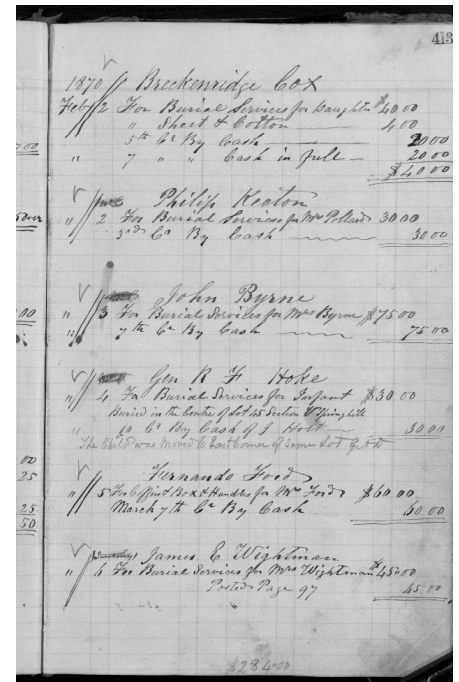 413
1870 Breckenridge Cox
Feby 2 For Burial Services for Daughter $40.00
" Sheet & Cotton 4 00
5th Cr By Cash 20 00
" 7 " " Cash in full 20 00
$40.00
Philip Keaton
" 2 For Burial Services for Mr Pollard 30 00
3rd Cr By Cash 30 00
John Byrne
" 3 For Burial Services for Mrs Byrne $75 00
" 7th Cr By Cash 75 00
Gen R F Hoke
" 4 For Burial Services for Infant $30 00
Buried in the Centre of Lot 45 Section Springhill
" Cr By Cash of J Holt 30 00
The Child was Moved to East Corner of Same Lot
Fernando Ford
" 5 For Coffin & Box & Handles for Mr Ford $60 00
March 7th Cr By Cash 60 00
James E Wightman
" 6 For Burial Services for Mrs Wightman $45 00
Posted Page 97 45 00
$284.00
00
25
25
50